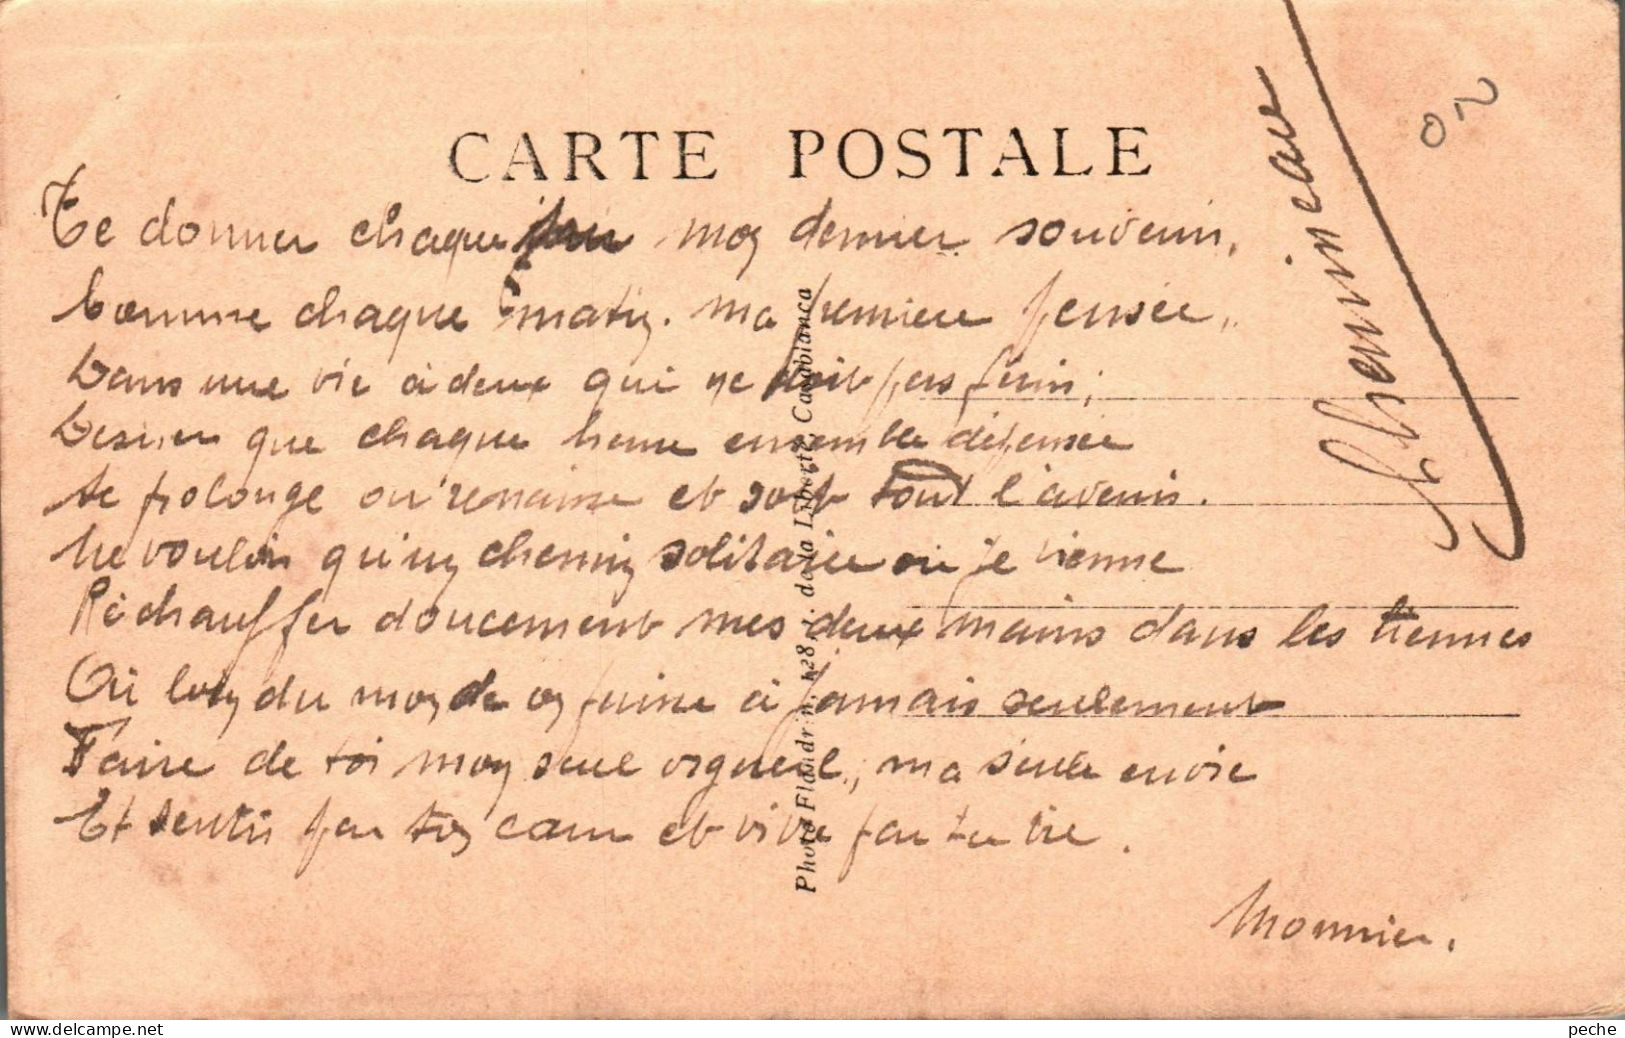 CARTE POSTALE
Te donner chaque soir moy dernier souvenir,
Comme chaque matiy. ma première pensée,
Dans une vie à deux qui ne doit pas finir,
Desirer que chaque heure ensemble dépensée
Se prolonge ou renaisse et soit tout l'avenir.
Ne vouloir qu'uy chemiy solitaire où je vienne
Réchauffer doucement mes deux mains dans les tiennes
Où loiy du moyde oy puisse à jamais seulement
Faire de toi moy seul orgueil, ma seule envie
Et sentir par toy cœur et vivre par ta vie.
Monnier.
Chemineau
Photo Flandrin, 128, r. de la Liberté, Casablanca
peche